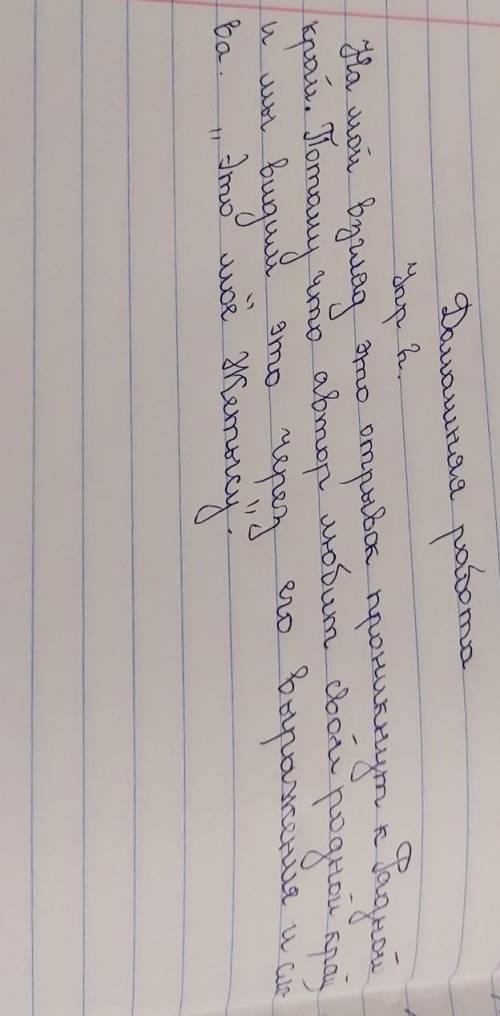 Домашняя работа
Упр 2.
На мой взгляд это отрывок проникнут к Радной
край. Потаму что автор любит свой родной край
и мы видим это через его выражения и сло
ва. „Это моё Жетысу".